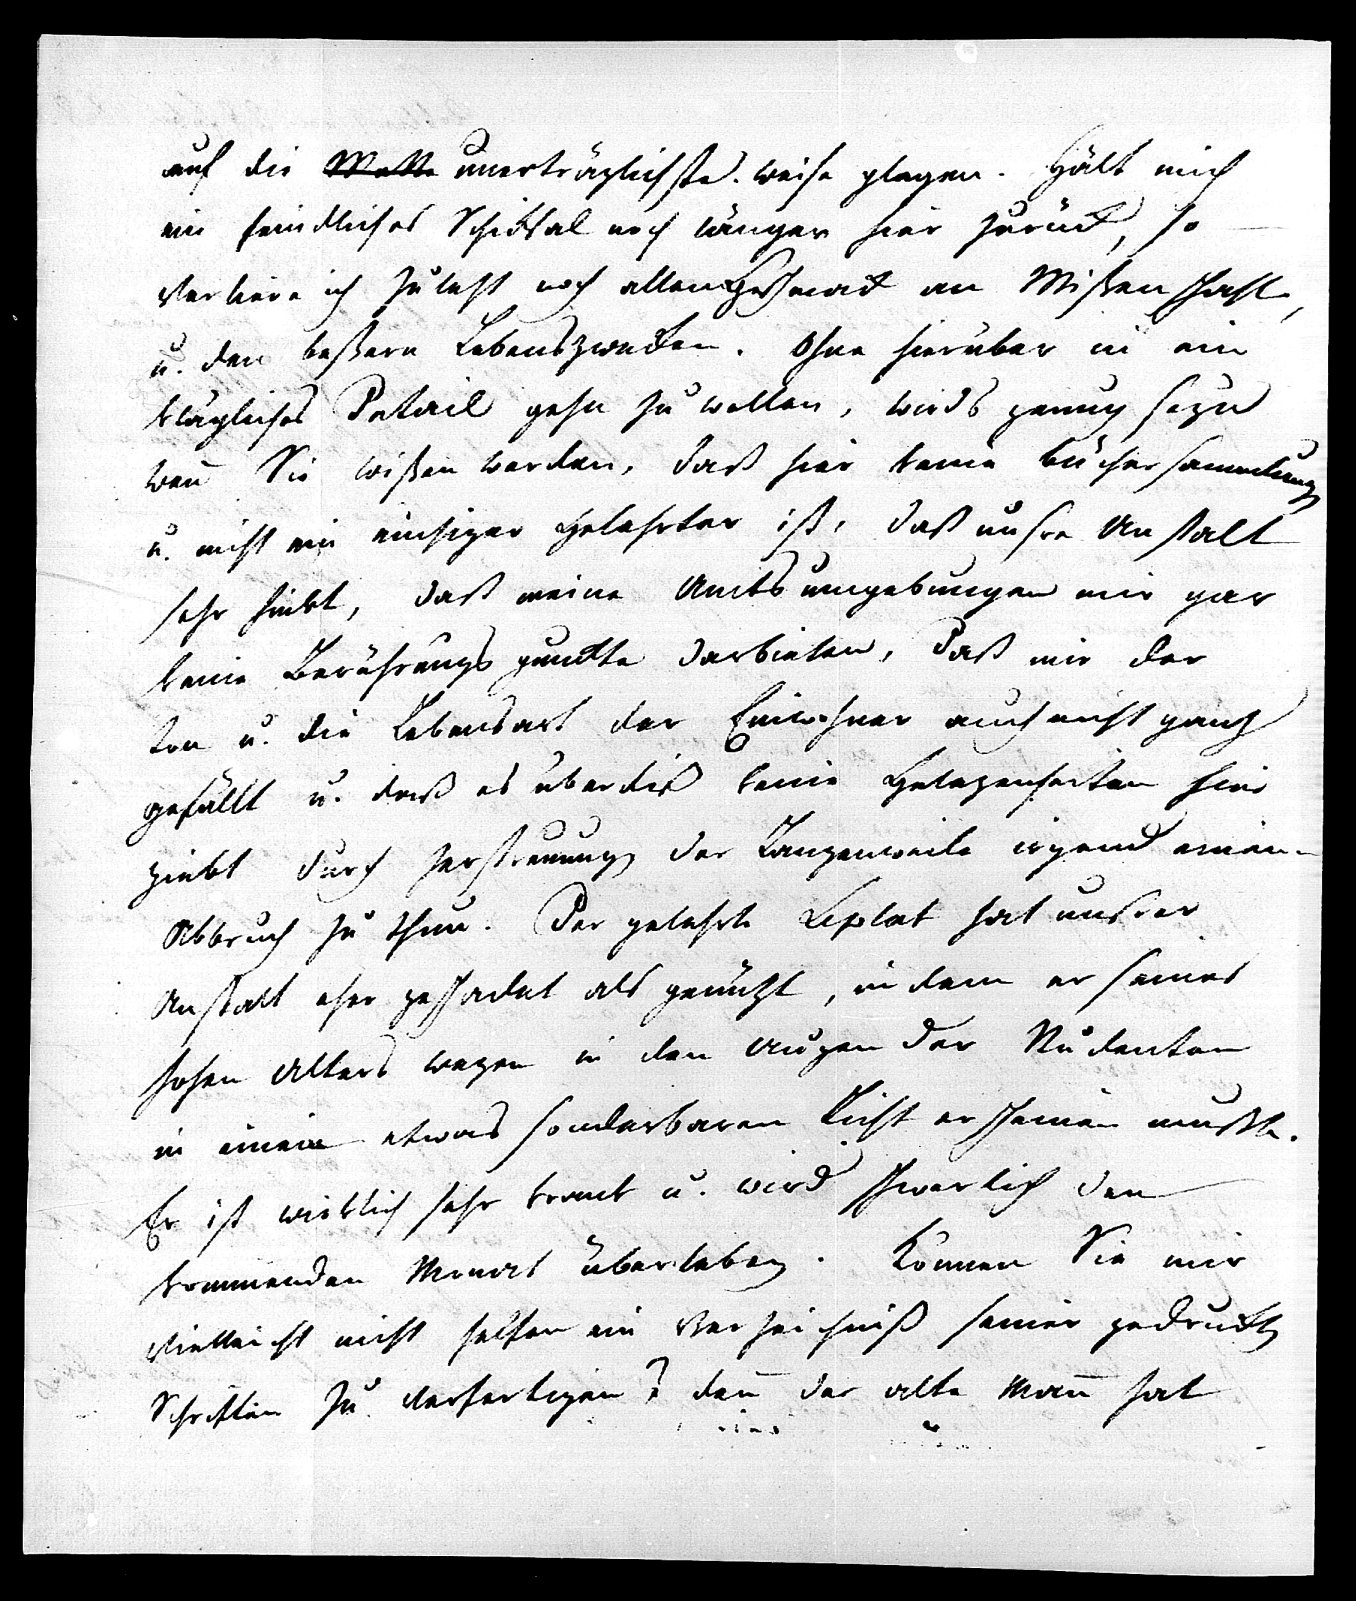 auf die unerträglichste. weise plagen. Hält mich
ein feindliches Schiksal noch länger hier zurück, so
verliere ich zulezt noch allen Geschmack an Wißenschaft,
u. den beßern Lebenszwecken. Ohne hierüber in ein
klägliches Detail gehn zu wollen, wirds genug seyn
wen̄ Sie wißen werden, daß hier keine Büchersammlung
u. nicht ein einziger Gelehrter ist, daß unsre Anstalt
sehr hinkt, daß meine Amtsumgebungen mir gar
keine Berührungspunckte darbieten, daß mir der
Ton u. die Lebensart der Einwohner auch nicht ganz
gefällt u. daß es überdieß keine Gelegenheiten hier
giebt durch Zerstreuung der Langenweile irgend einen
Abbruch zu thun. Der gelehrte Leplat hat unsrer
Anstalt eher geschadet als genüzt, indem er seines
hohen Alters wegen in den Augen der Studenten
in einem etwas sonderbaren Licht erscheinen mußte.
Er ist wirklich sehr krank u. wird schwerlich den
kommenden Monat überleben. Können Sie mir
vielleicht nicht helfen ein Verzeichniß seiner gedruckten
Schriften zu verfertigen? den̄ der alte Man̄ hat